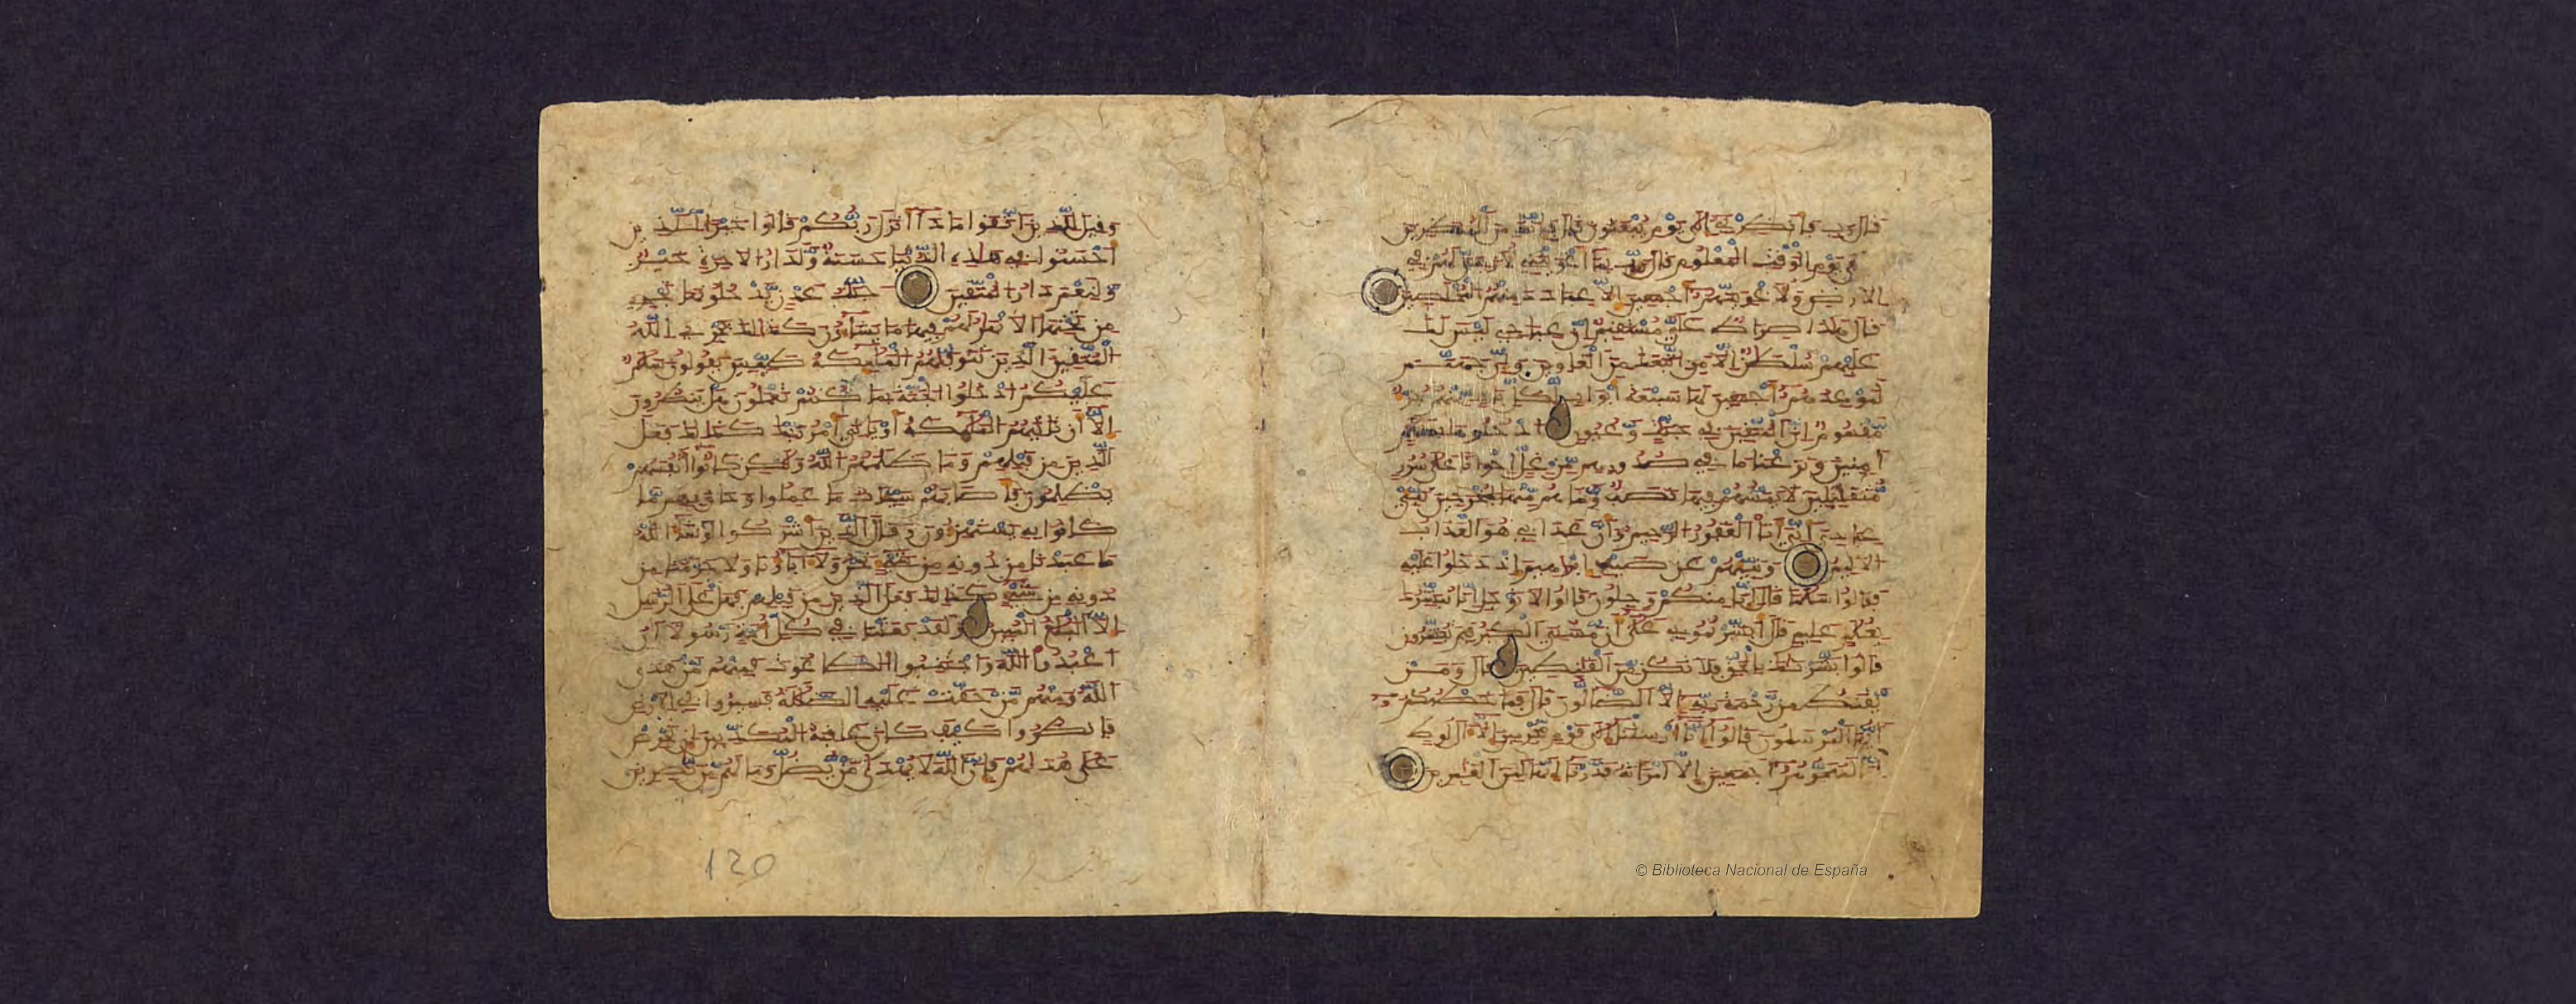 قال رب فأنظرني إلى يوم يبعثون قال فإنك من المنظرين
إلى يوم الوقت المعلوم قال رب بما أغويتني لأزينن لهم في
الأرض ولأغوينهم أجمعين إلا عبادك منهم المخلصين
قال هذا صراط علي مستقيم إن عبادي ليس لك
عليهم سلطن إلا من اتبعك من الغاوين وإن جهنم
لموعدهم أجمعين لها سبعة أبواب لكل باب منهم جزء
مقسوم إن المتقين في جنت وعيون ادخلوها بسلم
آمنين ونزعنا ما في صدورهم من غل إخوانا على سرر
متقبلين لا يمسهم فيها نصب وما هم منها بمخرجين نبئ
عبادي أني أنا الغفور الرحيم وأن عذابي هو العذاب
الأليم ونبئهم عن ضيف إبرهيم إذ دخلوا عليه
فقالوا سلما قال إنا منكم وجلون قالوا لا توجل إنا نبشرك
بغلم عليم قال أبشرتموني على أن مسني الكبر فبم تبشرون
قالوا بشرنك بالحق فلا تكن من القنطين قال ومن
يقنط من رحمة ربه إلا الضالون قال فما خطبكم
أيها المرسلون قالوا إنا أرسلنا إلى قوم مجرمين إلا آل لوط
إنا لمنجوهم أجمعين إلا امرأته قدرنا إنها لمن الغبرين
وقيل للذين اتقوا ماذا أنزل ربكم قالوا خيرا للذين
أحسنوا في هذه الدنيا حسنة ولدار الآخرة خير
ولنعم دار المتقين جنت عدن يدخلونها تجري
من تحتها الأنهر لهم فيها ما يشاءون كذلك يجزي الله
المتقين الذين تتوفيهم الملئكة طيبين يقولون سلم
عليكم ادخلوا الجنة بما كنتم تعملون هل ينظرون
إلا أن تأتيهم الملئكة أو يأتي أمر ربك كذلك فعل
الذين من قبلهم وما ظلمهم الله ولكن كانوا أنفسهم
يظلمون فأصابهم سيئات ما عملوا وحاق بهم ما
كانوا به يستهزءون وقال الذين أشركوا لو شاء الله
ما عبدنا من دونه من شيء نحن ولا آباؤنا ولا حرمنا من
دونه من شيء كذلك فعل الذين من قبلهم فهل على الرسل
إلا البلغ المبين ولقد بعثنا في كل أمة رسولا أن
اعبدوا الله واجتنبوا الطاغوت فمنهم من هدى
الله ومنهم من حقت عليه الضللة فسيروا في الأرض
فانظروا كيف كان عاقبة المكذبين إن تحرص
على هديهم فإن الله لا يهدى من يضل وما لهم من نصرين
120
© Biblioteca Nacional de España